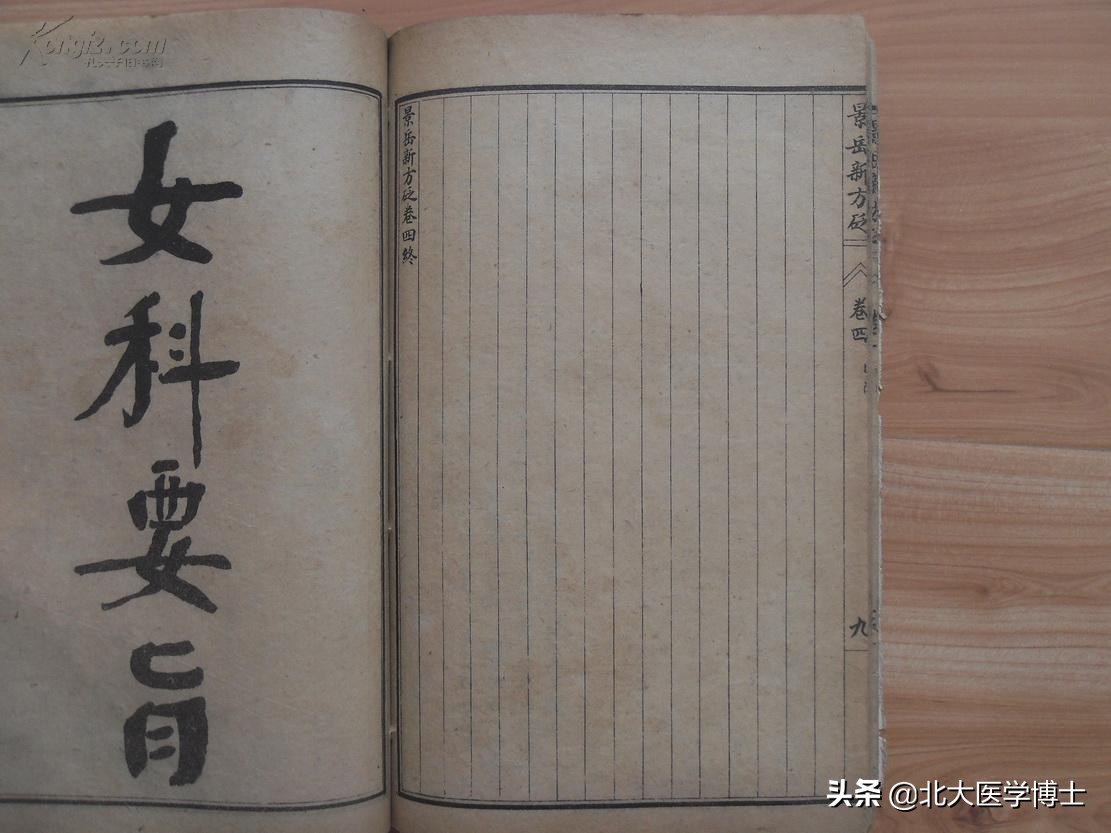 Kongfz.com
孔夫子旧书网
景岳新方砭
卷四
九
景岳新方砭卷四終
女科要旨
头条 @北大医学博士